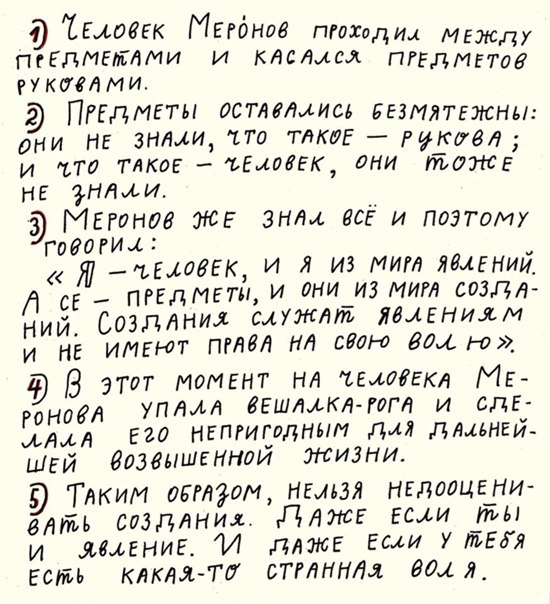 1) Человек Меро́нов проходил между
предметами и касался предметов
руковами.
2) Предметы оставались безмятежны:
они не знали, что такое — рукова;
и что такое — человек, они тоже
не знали.
3) Меронов же знал всё и поэтому
говорил:
« Я — человек, и я из мира явлений.
А се — предметы, и они из мира созда-
ний. Создания служат явлениям
и не имеют права на свою волю».
4) В этот момент на человека Ме-
ронова упала вешалка-рога и сде-
лала его непригодным для дальней-
шей возвышенной жизни.
5) Таким образом, нельзя недооцени-
вать создания. Даже если ты
и явление. И даже если у тебя
есть какая-то странная воля.